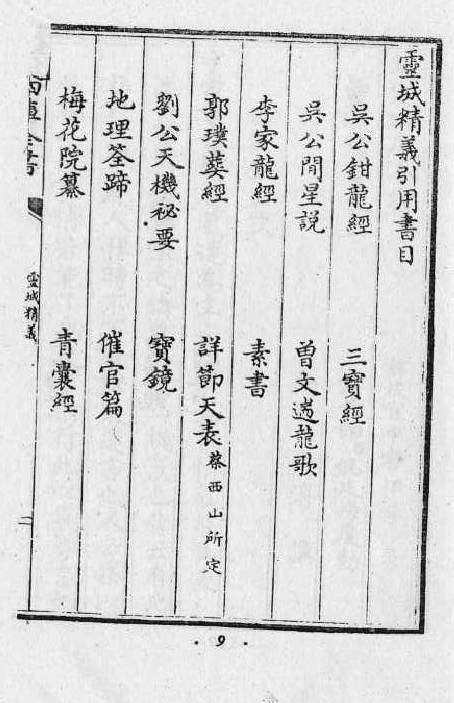 靈城精義引用書目
吳公鉗龍經 三寶經
吳公間星說 曾文遄龍歌
李家龍經 素書
郭璞葬經 詳節天表 蔡西山所定
劉公天機祕要 寶鏡
地理筌蹄 催官篇
梅花院纂 青囊經
靈城精義
二
·9·